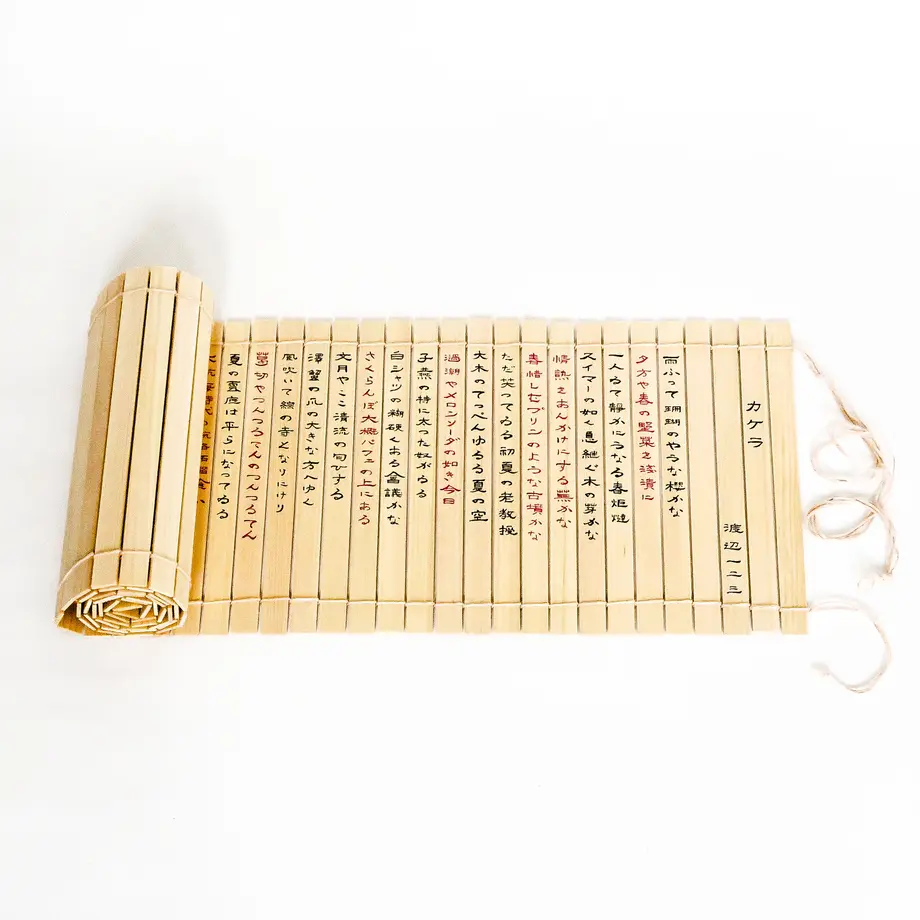 カケラ
渡辺一二三
雨ふって珊瑚のやうな櫻かな
夕方や春の菜を浅漬に
一人ゐて静かにうなる春炬燵
スイマーの如く息継ぐ木の芽かな
情熱をあんかけにする蕪かな
春惜しむプリンのような古墳かな
ただ笑ってゐる初夏の老教授
大木のてっぺんゆるる夏の空
やメロンソーダの如き今日
子燕の特に太った奴がゐる
白シャツの糊硬くある會議かな
さくらんぼ大概パフェの上にある
文月やここ清流の匂ひする
澤蟹の爪の大きな方へゆく
風吹いて緑の寺となりにけり
葛切やつんつるてんのつんつるてん
夏の庭は平らになってゐる